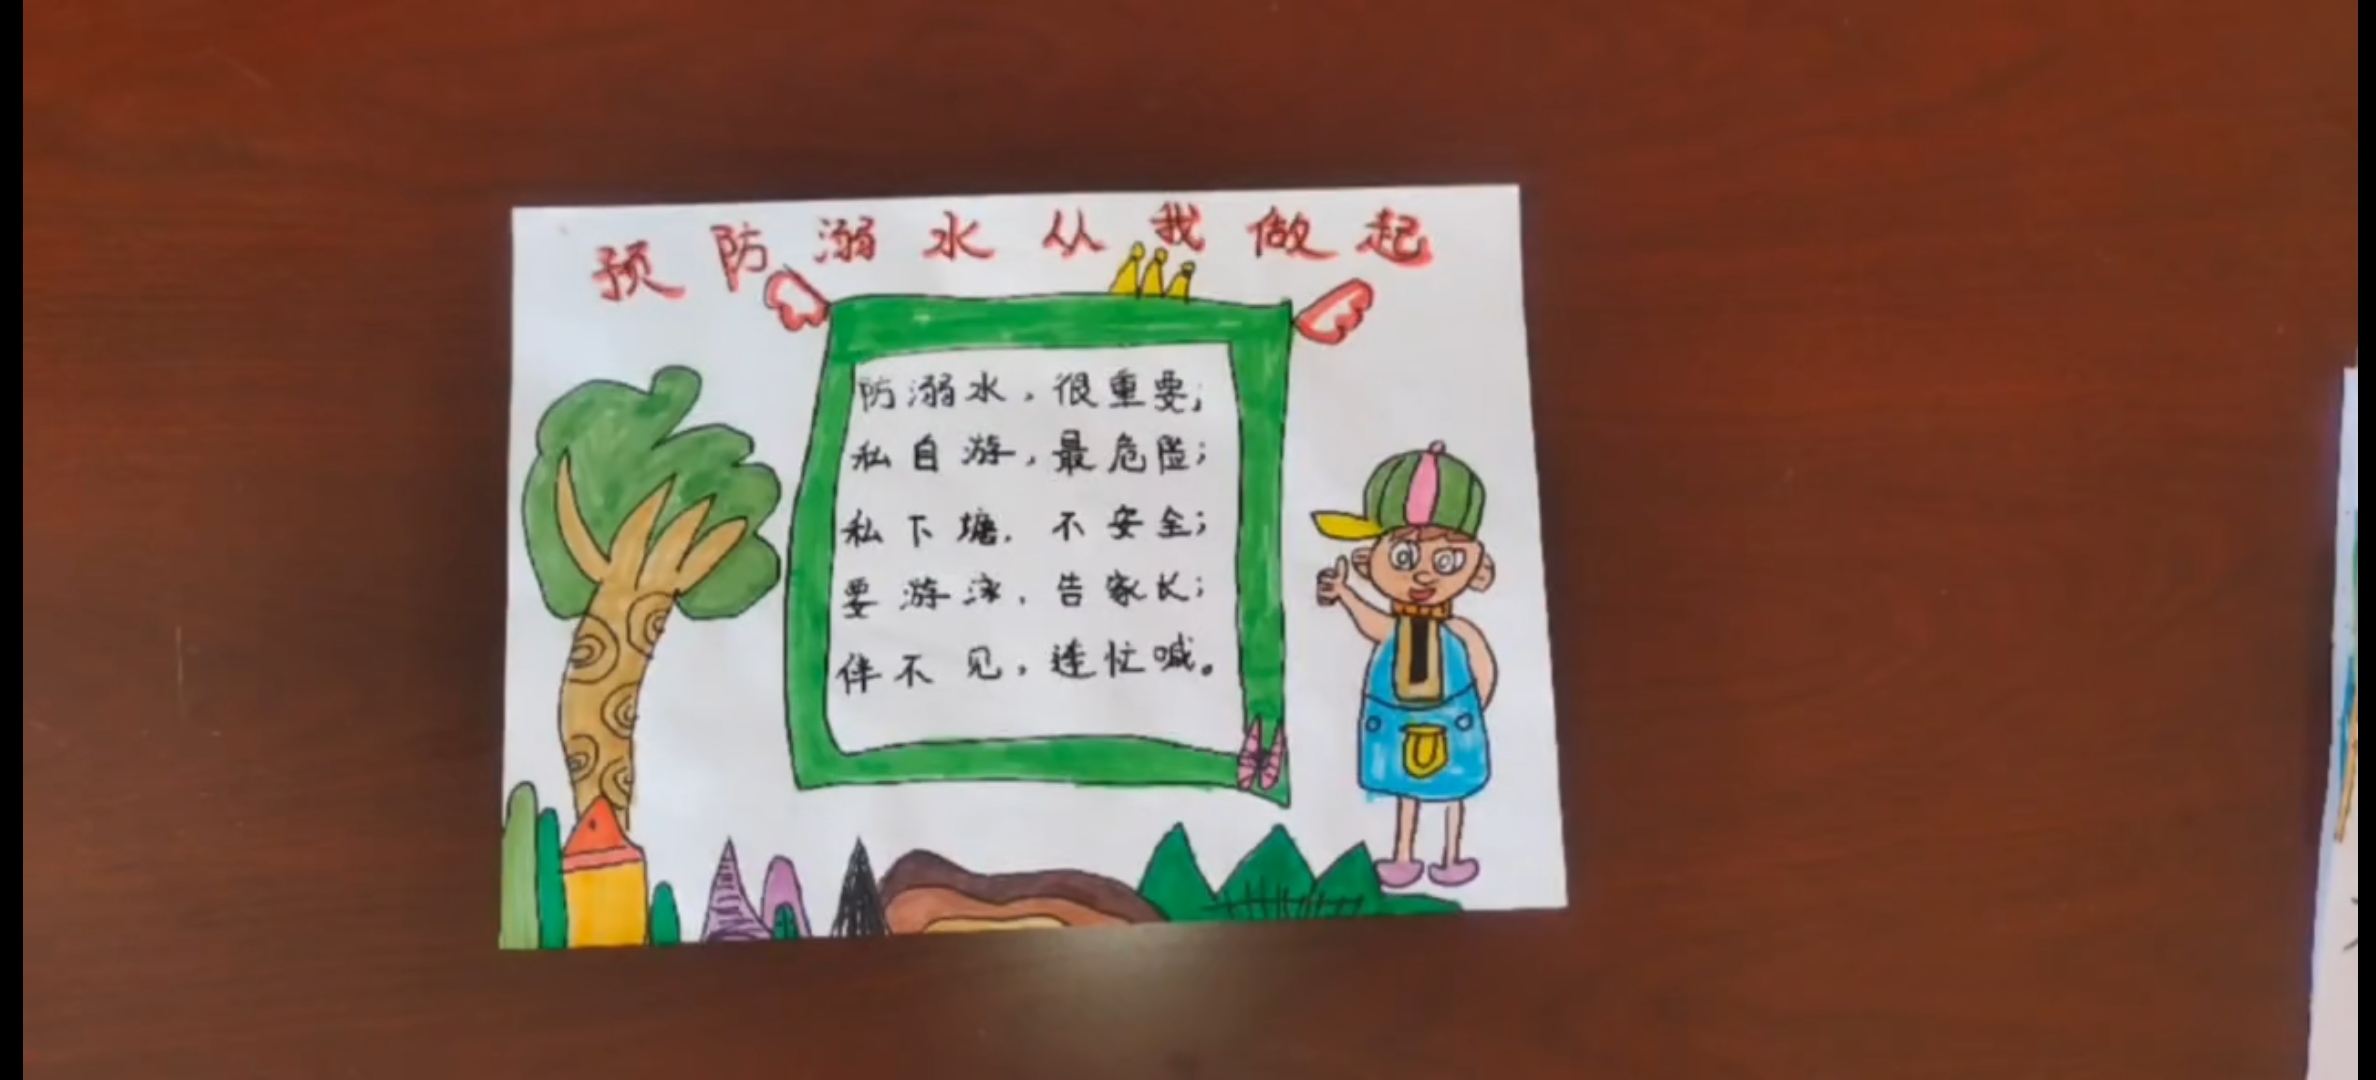 预防溺水从我做起
防溺水，很重要；
私自游，最危险；
私下塘，不安全；
要游泳，告家长；
伴不见，连忙喊。